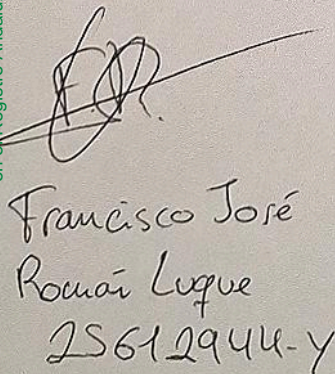 Francisco José
Román Luque
25612944-Y